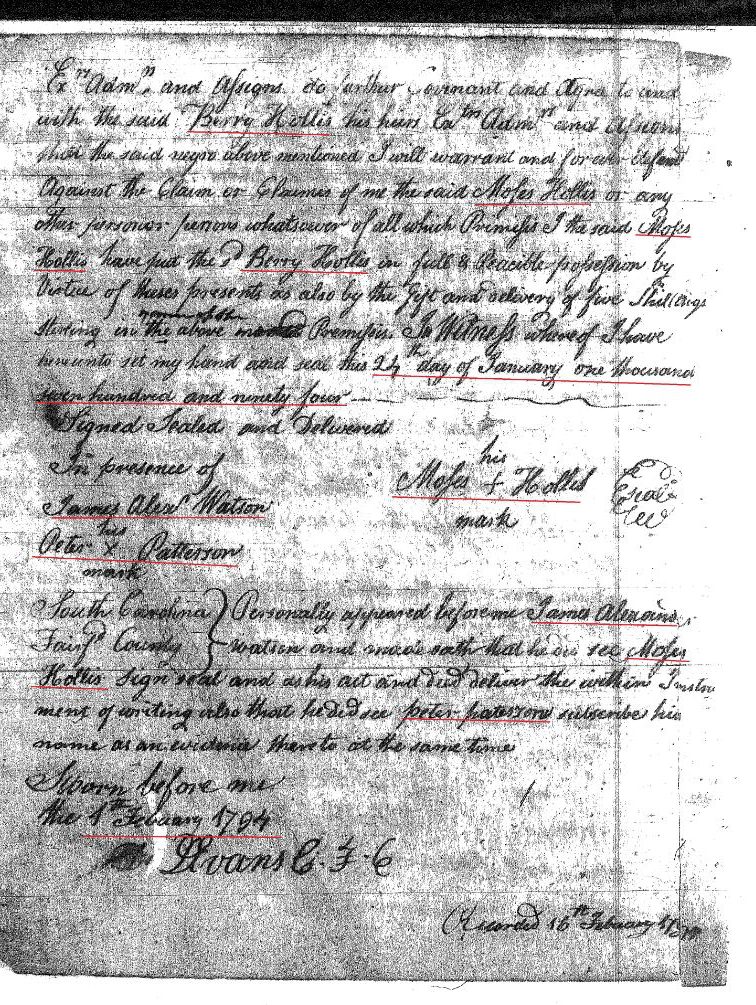 Exrs Admrs and Assigns do further Covenant and Agree to and
with the said Berry Hollis his heirs Exrs Admrs and Assigns
that the said negro above mentioned I will warrant and forever defend
Against the Claim or Claimes of me the said Moses Hollis or any
other person or persons whatsoever of all which Premises I the said Moses
Hollis have put the sd Berry Hollis in full & Peacible possession by
Virtue of theses presents as also by the Gift and delivery of five Shillings
Sterling in the above Premises In Witness whereof I have
hereunto set my hand and seal this 24th day of January one thousand
seven hundred and ninety four
Signed Sealed and Delivered
In presence of
James Alexr Watson
Peter his X mark Patterson
Moses his + mark Hollis
Seal
South Carolina } Personally appeared before me James Alexand
Fairfd County } watson and made oath that he did see Moses
Hollis Sign seal and as his act and deed deliver the within Instru
ment of writing also that he did see peter paterson subscribe his
name as an evidence thereto at the same time
Sworn before me
the 1th February 1794
DEvans C. F. C
Recorded 16th February 17